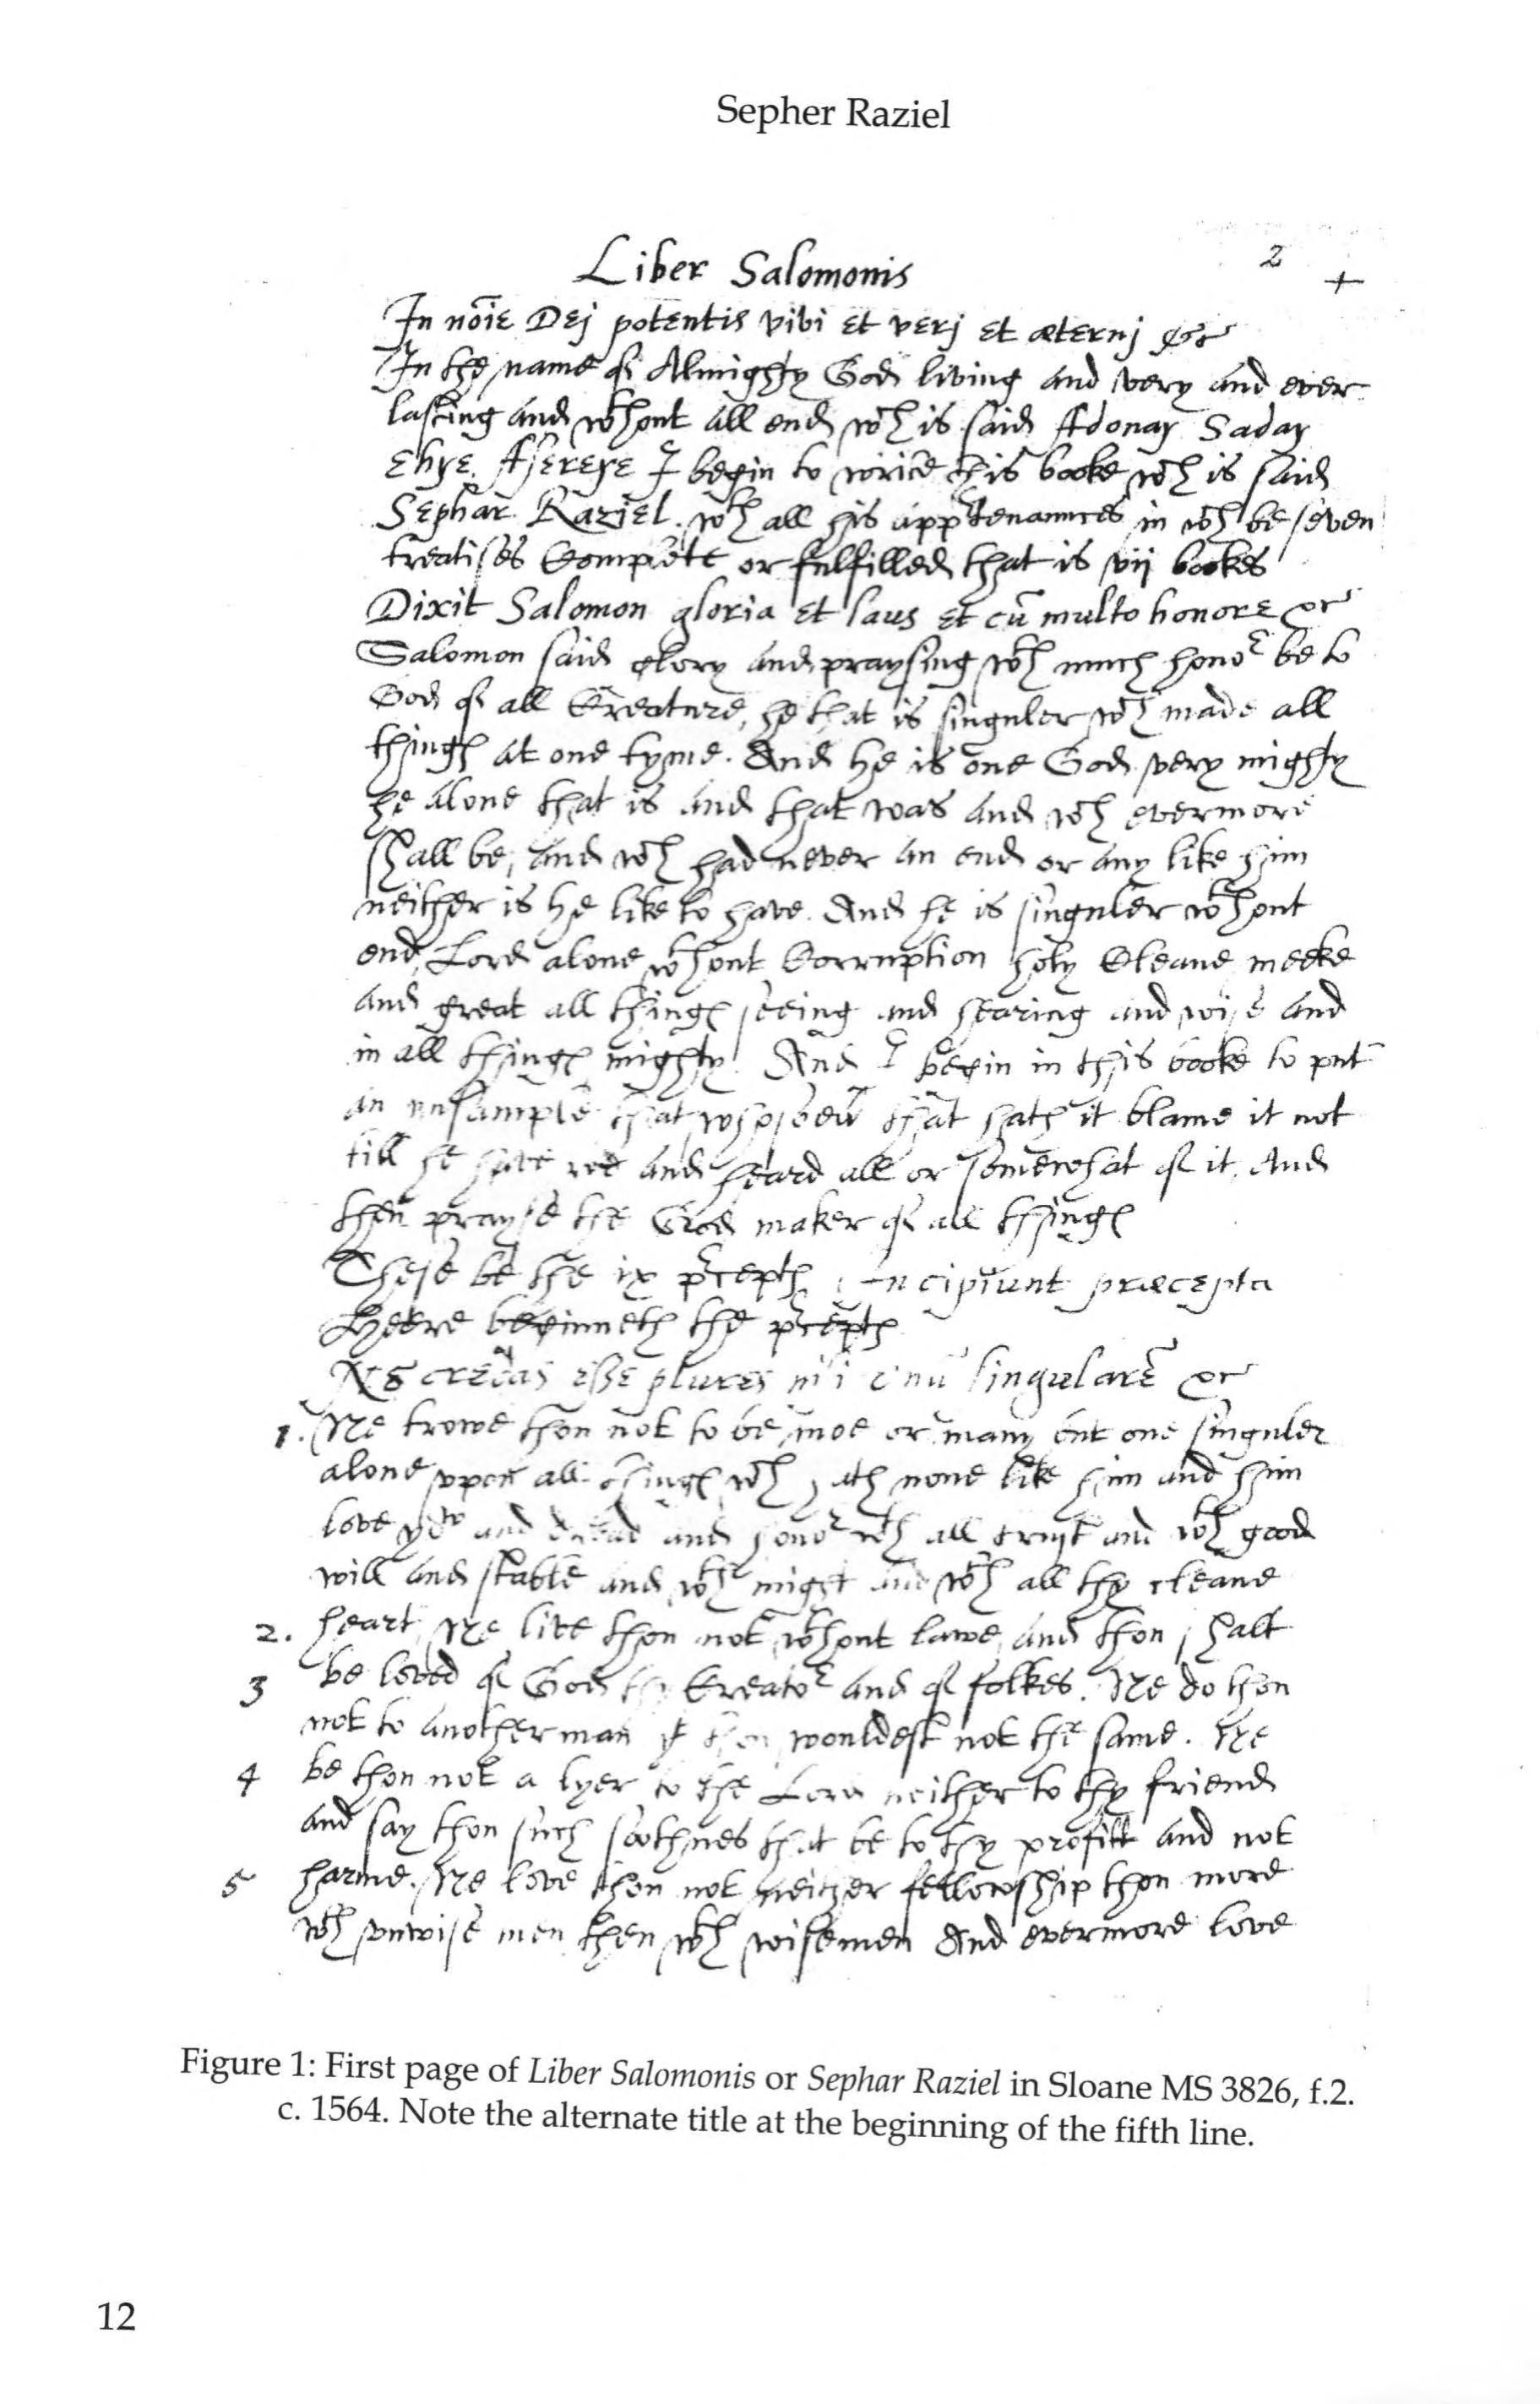 Sepher Raziel
2
+
Liber Salomonis
In nōie Dej potentis vivi et verj et æternj &c
In the name of Almighty God living and very and ever
lasting and wth out all end wch is said Adonay Saday
Ehye Asereye I begin to write this booke wch is said
Sephar Raziel. wth all his appꝛtenannces in wch be seven
treatises Complete or fulfilled that is vij bookes
Dixit Salomon gloria et laus et cū multo honore &c
Salomon said glory and praysing wth much honor be to
God of all Creature, he that is singuler wch made all
things at one tyme. And he is one God very mighty
he alone that is and that was and wch evermore
shall be, and wch had never an end or any like him
neither is he like to have. And he is singuler wthout
end, Lord alone wthout Corruption holy Cleane meeke
and great all things seeing and hearing and wise and
in all things mighty. And I begin in this booke to put
an ensample that whosoeuʳ that hath it blame it not
till he have red and heard all or somewhat of it. And
then prayse the God maker of all things
These be the ix pꝛcepts Incipiunt præcepta
Heere beginneth the pꝛcepts
Ne credas esse plures nisi unū singularē &c
1. Ne trowe thou not to be moe or many but one singuler
alone upon all things wch hath none like him and him
love and dread and honor wth all trust and wth good
will and stable and wth might and wth all thy cleane
2. heart. Ne live thou not wthout lawe, and thou shalt
3 be loved of God thy Creator and of folkes. Ne do thou
not to another man yt thou wouldest not the same. Ne
4 be thou not a lyer to the Lord neither to thy friend
and say thou such soothnes that be to thy profitt and not
5 harme. Ne love thou not neither fellowship thou more
wth unwise men then wth wisemen And evermore love
Figure 1: First page of Liber Salomonis or Sephar Raziel in Sloane MS 3826, f.2.
c. 1564. Note the alternate title at the beginning of the fifth line.
12